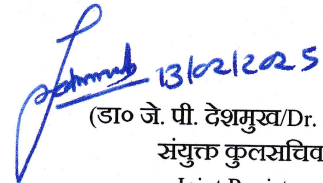 13/02/2025
(डा० जे. पी. देशमुख/Dr.
संयुक्त कुलसचिव